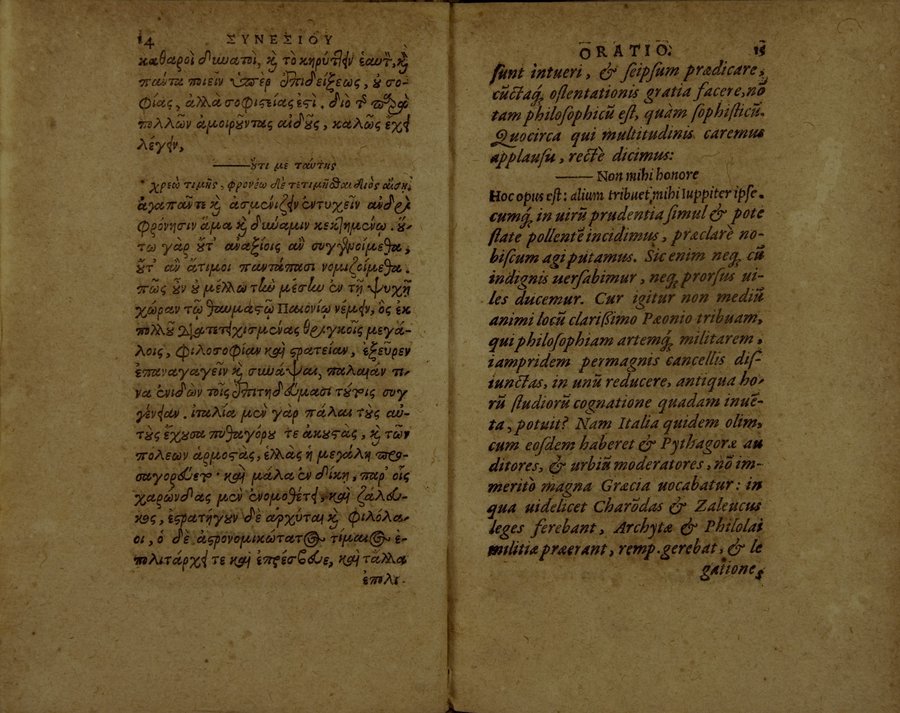 14 ΣΥΝΕΣΙΟΥ
καθαροὶ δυνατοὶ, κỳ τὸ κηρύττειν ἑαυτὸν, κỳ
πάντα ποιεῖν ὑπὲρ ἐπιδείξεως, οὐ σο-
φίας, ἀλλὰ σοφιστείας ἐστί. διὸ τοὺς παρὰ
πολλῶν ἀμοιροῦντας αἰδοῦς, καλῶς ἔχει
λέγειν,
——οὔτι με ταύτης
χρεὼ τιμῆς, φρονέω δὲ τετιμῆσθαι διὸς αἴσῃ.
ἀγαπᾶν τε κỳ ἀσμενίζειν ἐντυχεῖν ἀνδρὶ
φρόνησιν ἅμα κỳ δύναμιν κεκτημένῳ. οὕ-
τω γὰρ οὔτ' ἀναξίοις ἂν συγγινοίμεθα,
οὔτ' ἂν ἄτιμοι παντάπασι νομιζοίμεθα.
πῶς οὖν οὐ μέλλω τὴν μέσην ἐν τῇ ψυχῇ
χώραν τῷ θαυμαστῷ Παιονίῳ νέμειν, ὃς ἐκ
πολλοῦ διατετειχισμένας θριγκοῖς μεγά-
λοις, φιλοσοφίαν καὶ στρατείαν, ἐξεῦρεν
ἐπαναγαγεῖν κỳ συνάψαι, παλαιάν τι-
να ἐνιδὼν τοῖς ἐπιτηδεύμασι τούτοις συγ
γένειαν. ἰταλία μὲν γὰρ πάλαι τοὺς αὐ-
τοὺς ἔχουσα πυθαγόρου τε ἀκουστὰς, κỳ τῶν
πόλεων ἁρμοστὰς, ἑλλὰς ἡ μεγάλη προσ-
σαγορεύετο· καὶ μάλα ἐν δίκῃ, παρ' οἷς
χαρώνδας μὲν ἐνομοθέτει, καὶ ζάλευ-
κος, ἐστρατήγουν δὲ ἀρχύται κỳ φιλόλα-
οι, ὁ δὲ ἀστρονομικώτατος τίμαιος ἐ-
πολιτάρχει τε καὶ ἐπρέσβευε, καὶ τἄλλα
ἐπολι-
ORATIO. 15
sunt intueri, & seipsum prædicare,
cũctaq́; ostentationis gratia facere, nõ
tam philosophicũ est, quàm sophisticũ.
Quocirca qui multitudinis caremus
applausu, rectè dicimus:
——Non mihi honore
Hoc opus est: alium tribuet mihi Iuppiter ipse.
cumq́; in uirũ prudentia simul & pote
state pollentẽ incidimus, præclarè no-
biscum agi putamus. Sic enim neq́; cũ
indignis uersabimur, neq́; prorsus ui-
les ducemur. Cur igitur non mediũ
animi locũ clarißimo Pæonio tribuam,
qui philosophiam artemq́; militarem,
iampridem permagnis cancellis dis-
iunctas, in unũ reducere, antiqua ho-
rũ studiorũ cognatione quadam inuẽ-
ta, potuit? Nam Italia quidem olim,
cum eosdem haberet & Pythagoræ au
ditores, & urbiũ moderatores, nõ im-
meritò magna Græcia uocabatur: in
qua uidelicet Charõdas & Zaleucus
leges ferebant, Archytæ & Philolai
militiæ præerant, remp. gerebat, & le
gatione,